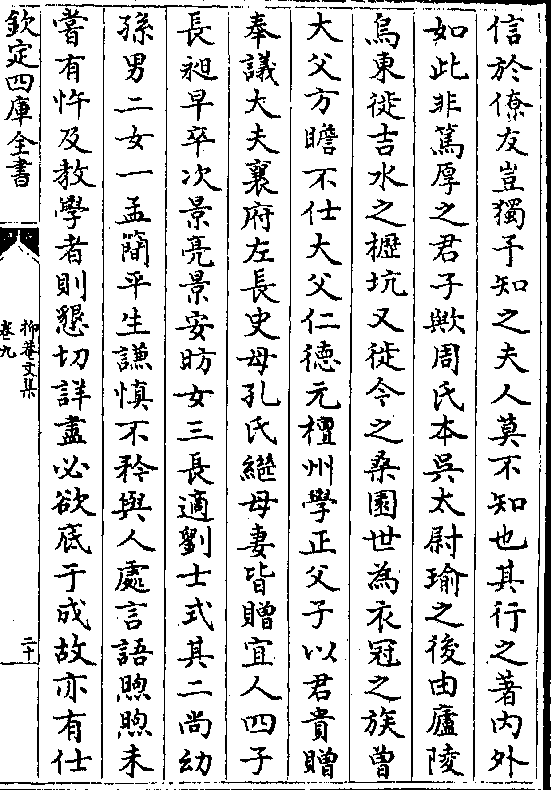 信於僚友豈獨予知之夫人莫不知也其行之著內外
如此非篤厚之君子歟周氏本吳太尉瑜之後由廬陵
烏東徙吉水之櫪坑又徙今之桑園世為衣冠之族曾
大父方瞻不仕大父仁德元檀州學正父子以君貴贈
奉議大夫襄府左長史母孔氏繼母妻皆贈宜人四子
長昶早卒次景亮景安昉女三長適劉士式其二尚幼
孫男二女一孟簡平生謙慎不矜與人處言語煦煦未
嘗有忤及教學者則懇切詳盡必欲底于成故亦有仕
欽定四庫全書
抑菴文集
卷九
二十